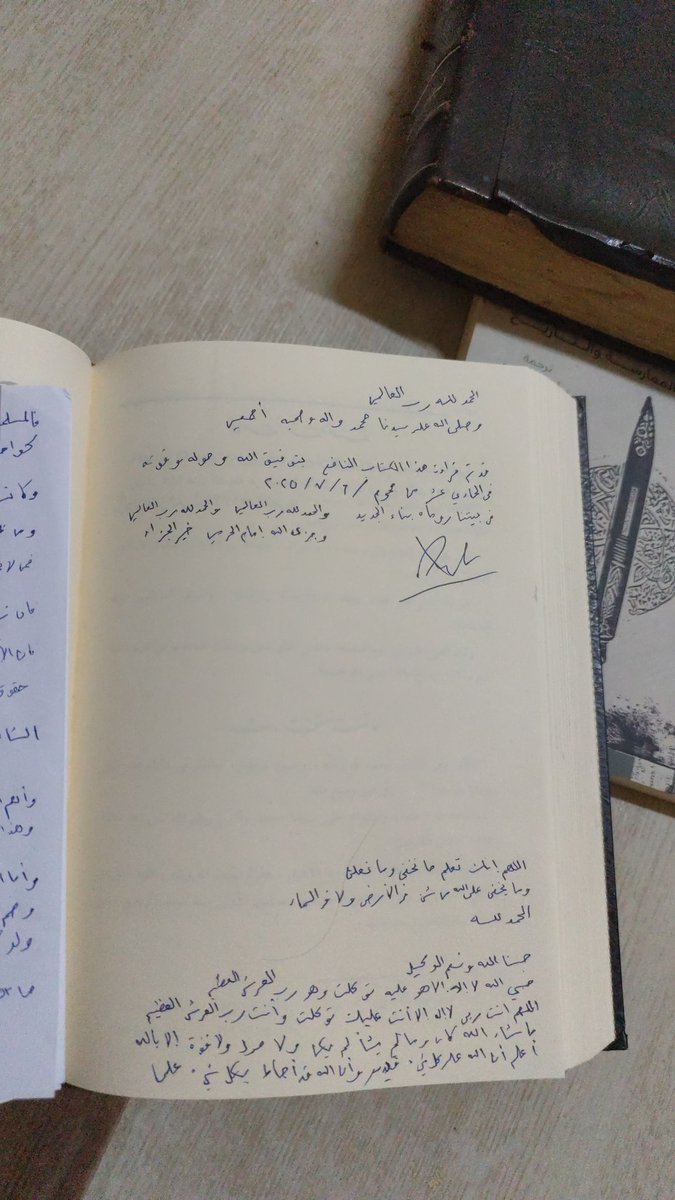 الحمد لله رب العالمين
وصلى الله على سيدنا محمد واله وصحبه أجمعين
قد تم قراءت هذا الكتاب النافع بتوفيق الله وحوله وقوته
في الحادي عشر من محرم / ٢٠٢٥/٧/٦
في بيتنا بناء الجديد والحمد لله رب العالمين والحمد لله رب العالمين
وجزى الله امام الحرمين خير الجزاء
اللهم إنك تعلم ما نخفي وما نعلن
وما يخفى على الله من شيء في الأرض ولا في السماء
الحمد لله
حسبنا الله ونعم الوكيل
حسبي الله لا اله الا هو عليه توكلت وهو رب العرش العظيم
اللهم أنت ربي لا اله الا أنت عليك توكلت وأنت رب العرش العظيم
ما شاء الله كان وما لم يشأ لم يكن ولا حول ولا قوة إلا بالله
أعلم أن الله على كل شيء قدير وأن الله قد أحاط بكل شيء علما
الممارسة والتاريخ
ترجمة
وكانت
حقوق
وأما
وهذا